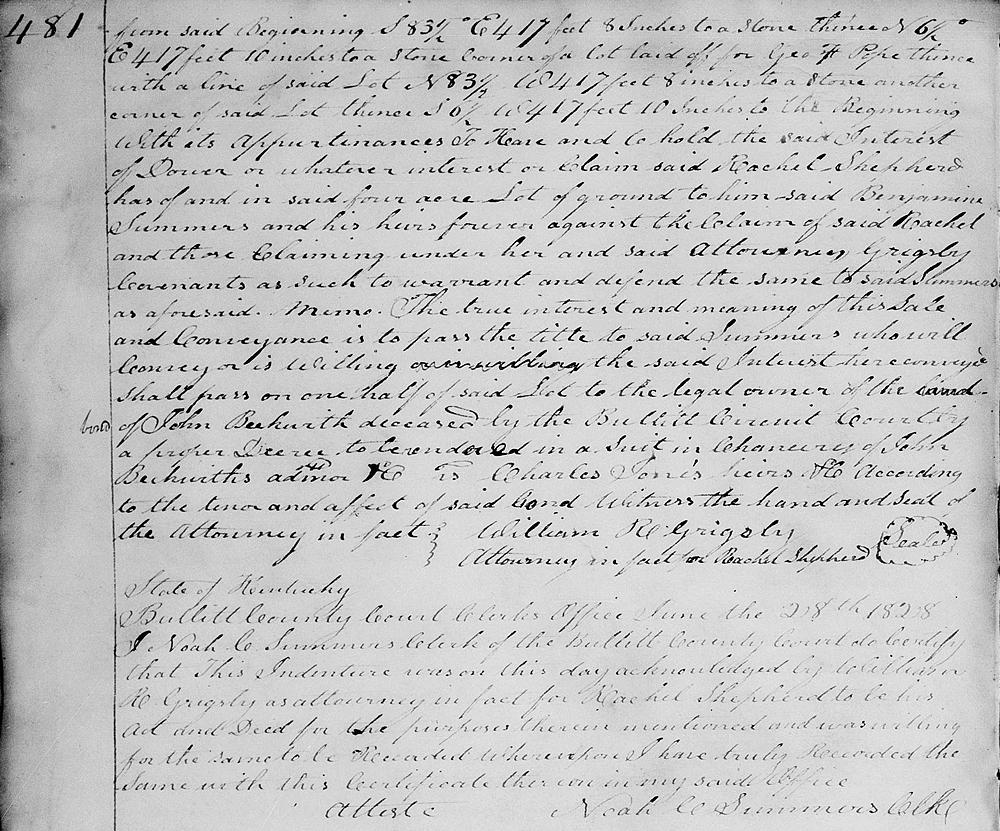 481
from said Beginning S 83½° E 417 feet 8 Inches to a Stone thince N 6½°
E 417 feet 10 inches to a Stone corner of a lot laid off for Geo H Pope thince
with a line of said Lot N 83½ W 417 feet 8 inches to a Stone another
corner of said Lot thince S 6½ W 417 feet 10 Inches to the Beginning
With its appurtinances To Have and to hold the said Interest
of Dower or whatever interest or Claim said Rachel Shepherd
has of and in said four acre Lot of ground to him said Benjamine
Summers and his heirs forever against the Claim of said Rachel
and those Claiming under her and said Attourney Grigsby
Covenants as such to warrant and defend the same to said Summers
as aforesaid. Memo. The true interest and meaning of this Sale
and Conveyance is to pass the title to said Summers who will
Convey or is Willing the said Interest here convey'd
Shall pass on one half of said Lot to the legal owner of the
bond
of John Beckwith deceased by the Bullitt Circuit Court by
a proper Decree to be rendered in a Suit in Chancery of John
Beckwiths admor &C vs Charles Jones heirs &C According
to the tenor and affect of said bond Witness the hand and Seal of
the Attourney in fact William R Grigsby
Attourney in fact for Rachel Shepherd Seale
State of Kentucky
Bullitt County Court Clerks Office June the 28th 1828
I Noah C Summers Clerk of the Bullitt County Court do Certify
that This Indenture was on this day acknowledged by William
R Grigsby as attourney in fact for Rachel Shepherd to be his
Act and Deed for the purposes therein mentioned and was willing
for the same to be Recorded Whereupon I have truly Recorded the
Same with this Certificate thereon in my said Office
Atteste Noah C Summers Clk